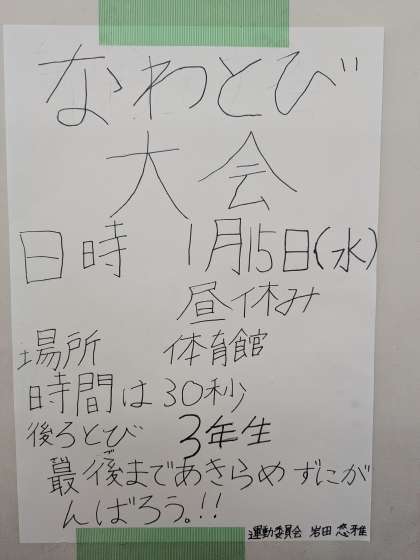 なわとび
大会
日時 1月15日(水)
昼休み
場所 体育館
時間は30秒
後ろとび 3年生
最後まであきらめずにが
んばろう。!!
運動委員会 岩田 悠雅